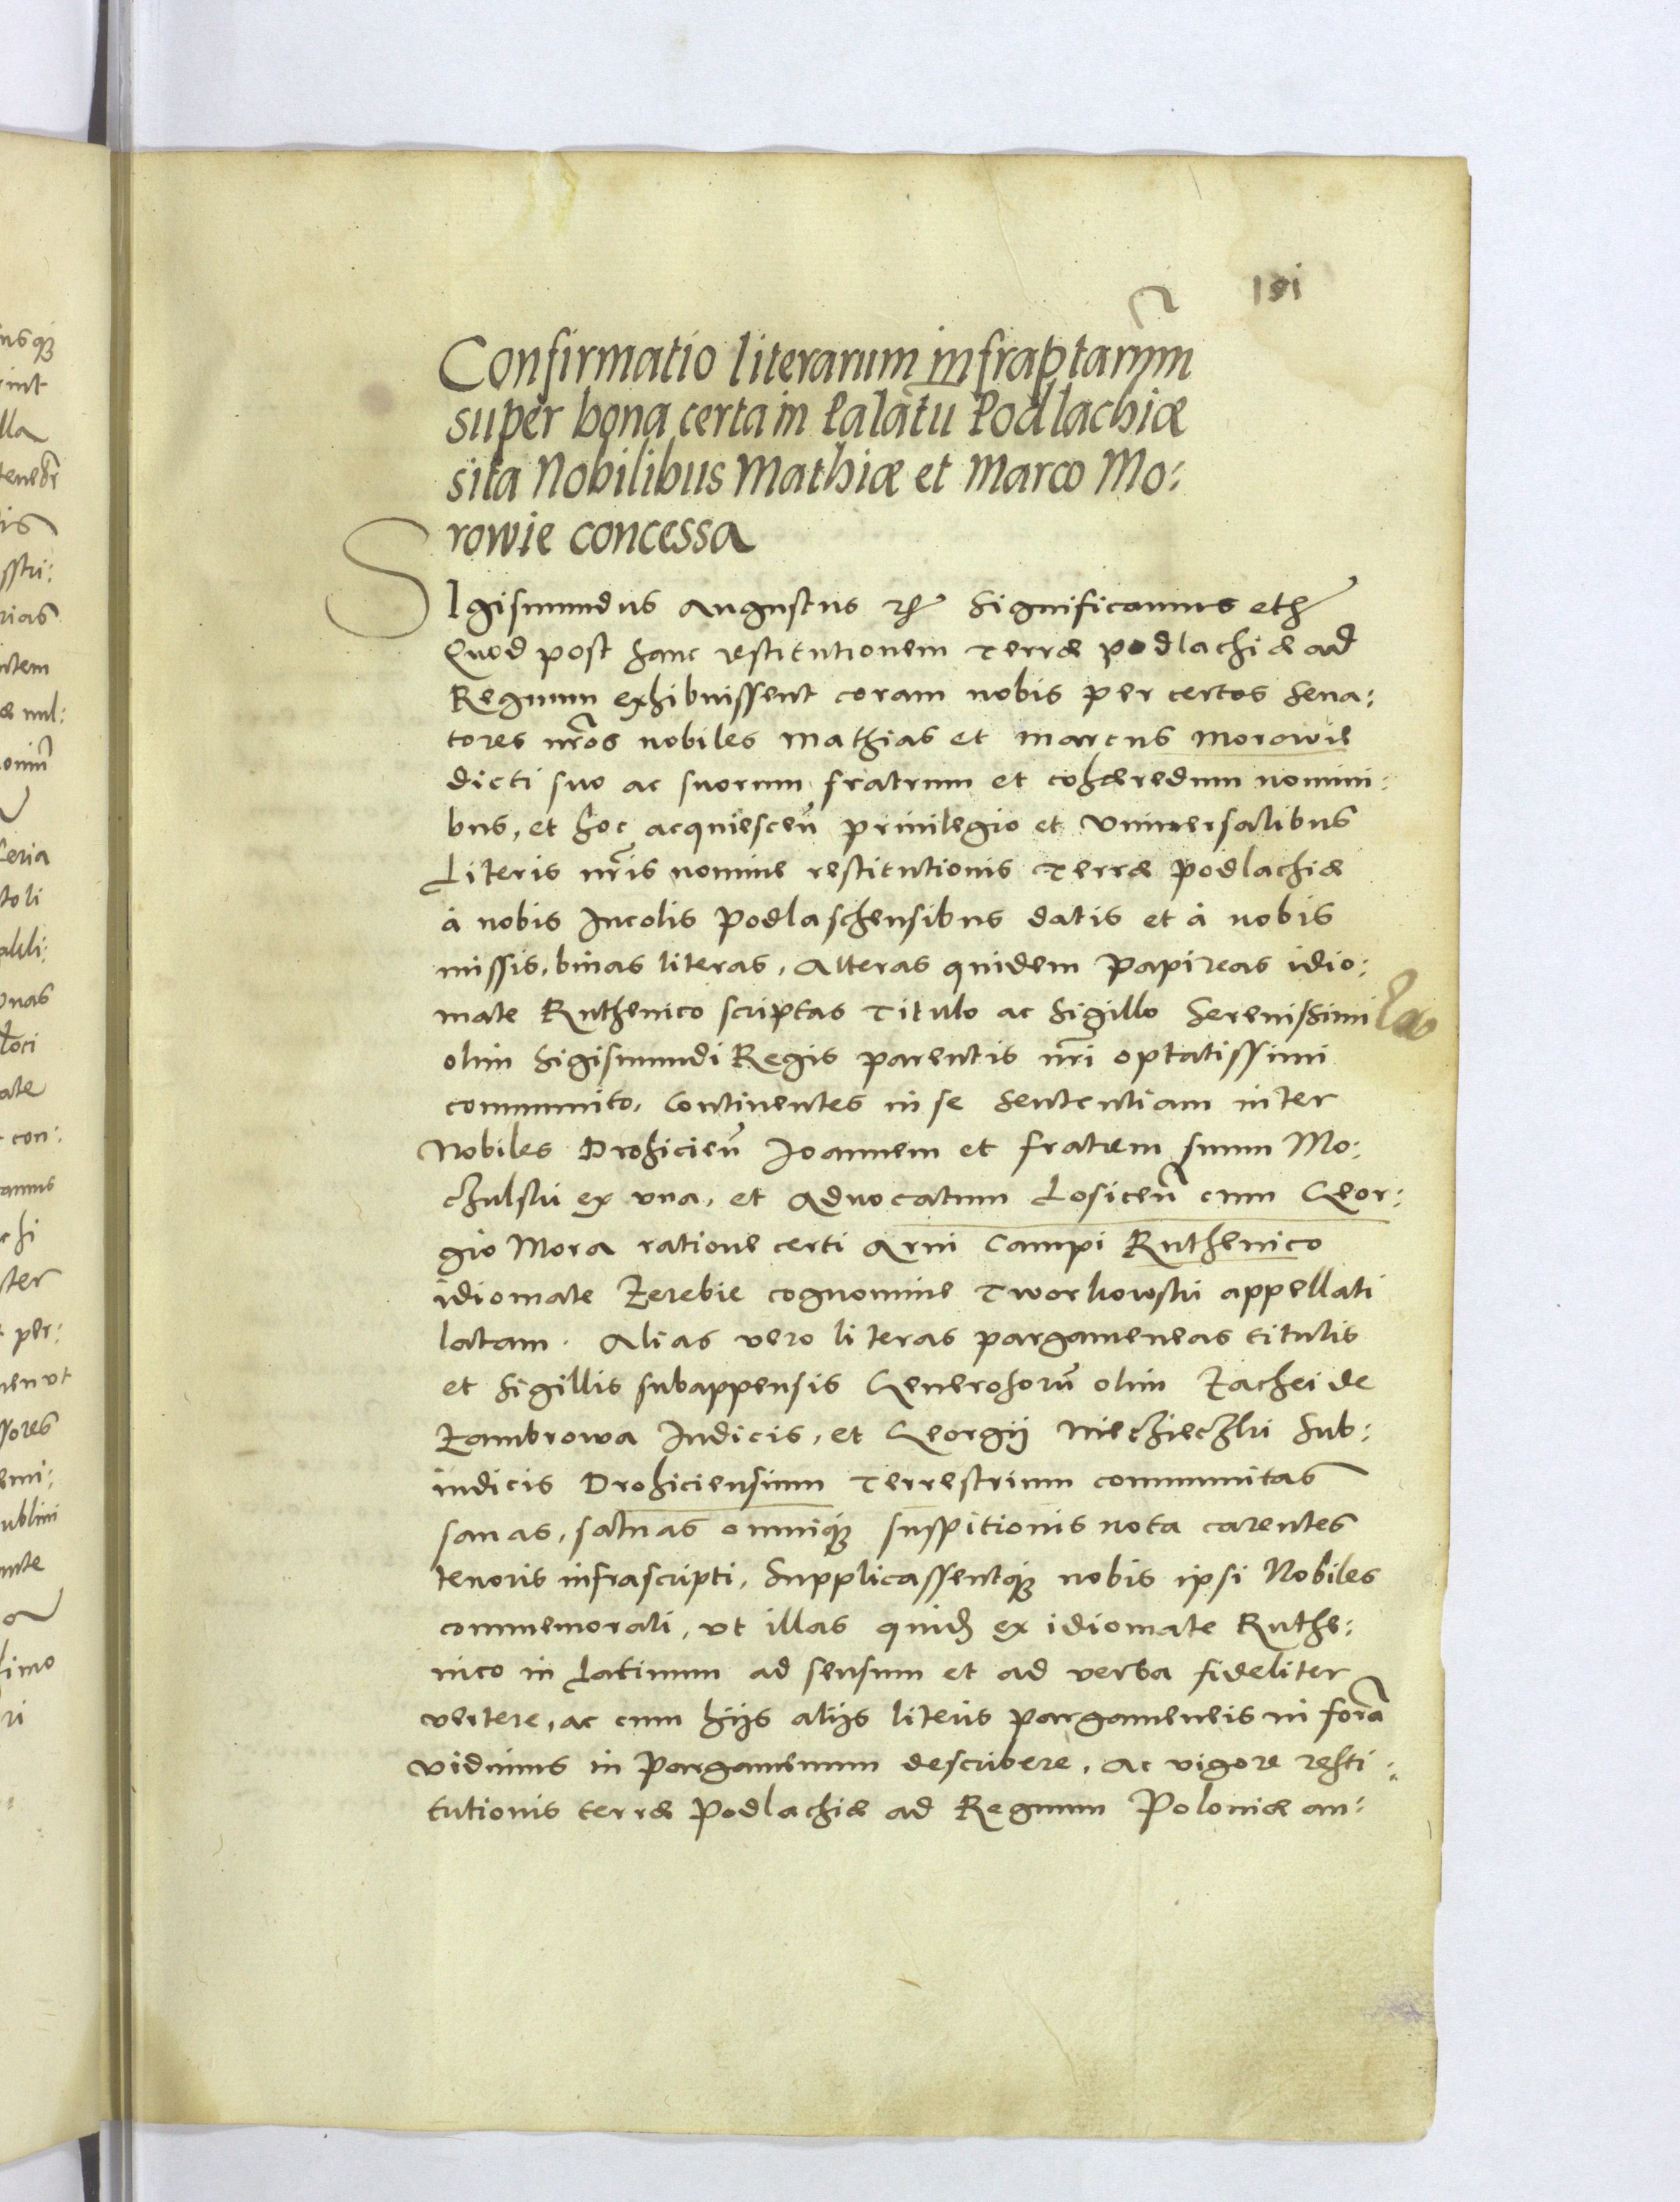 101
Confirmatio literarum infraptarum
super bona certa in Palatu Podlachiæ
sita Nobilibus Mathiæ et Marco Mo:
rowie concessa
SIgismundus Augustus &c Significamus etc
Quod post hanc restitutionem Terræ podlachiæ ad
Regnum exhibuissent coram nobis per certos Sena:
tores nros nobiles Mathias et Marcus Morowie
dicti suo ac suorum fratrum et cohæredum nomini:
bus, et hoc acquiesceñ priuilegio et Vniuersalibus
Literis nris nomine restitutionis Terræ Podlachiæ
à nobis Incolis Podlaschensibus datis et à nobis
missis, binas literas, Alteras quidem Papireas idio:
mate Ruthenico scriptas Titulo ac Sigillo Serenissimi
olim Sigismundi Regis parentis nri optatissimi
communito, Continentes in se Sententiam inter
Nobiles Drohicieñ Joannem et fratrem suum Mo:
czulski ex vna, et Aduocatum Losiceñ cum Geor:
gio Mora ratione certi Arui Campi Ruthenico
idiomate Zerebie cognomine Tworkowski appellati
latam. Alias vero literas pargameneas titulis
et Sigillis subappensis Generosorũ olim Zachei de
Zambrowa Iudicis, et Georgij Nieczieczki Sub:
iudicis Drohiciensium Terrestrium communitas
sanas, saluas omniq; suspitionis nota carentes
tenoris infrascripti, Supplicassentq; nobis ipsi Nobiles
commemorati, vt illas quid ex idiomate Ruthe:
nico in Latinum ad sensum et ad verba fideliter
vertere, ac cum hijs alijs literis pargameneis in forã
vidimus in Pargamenum describere, Ac vigore resti:
tutionis terræ Podlachiæ ad Regnum Poloniæ an: